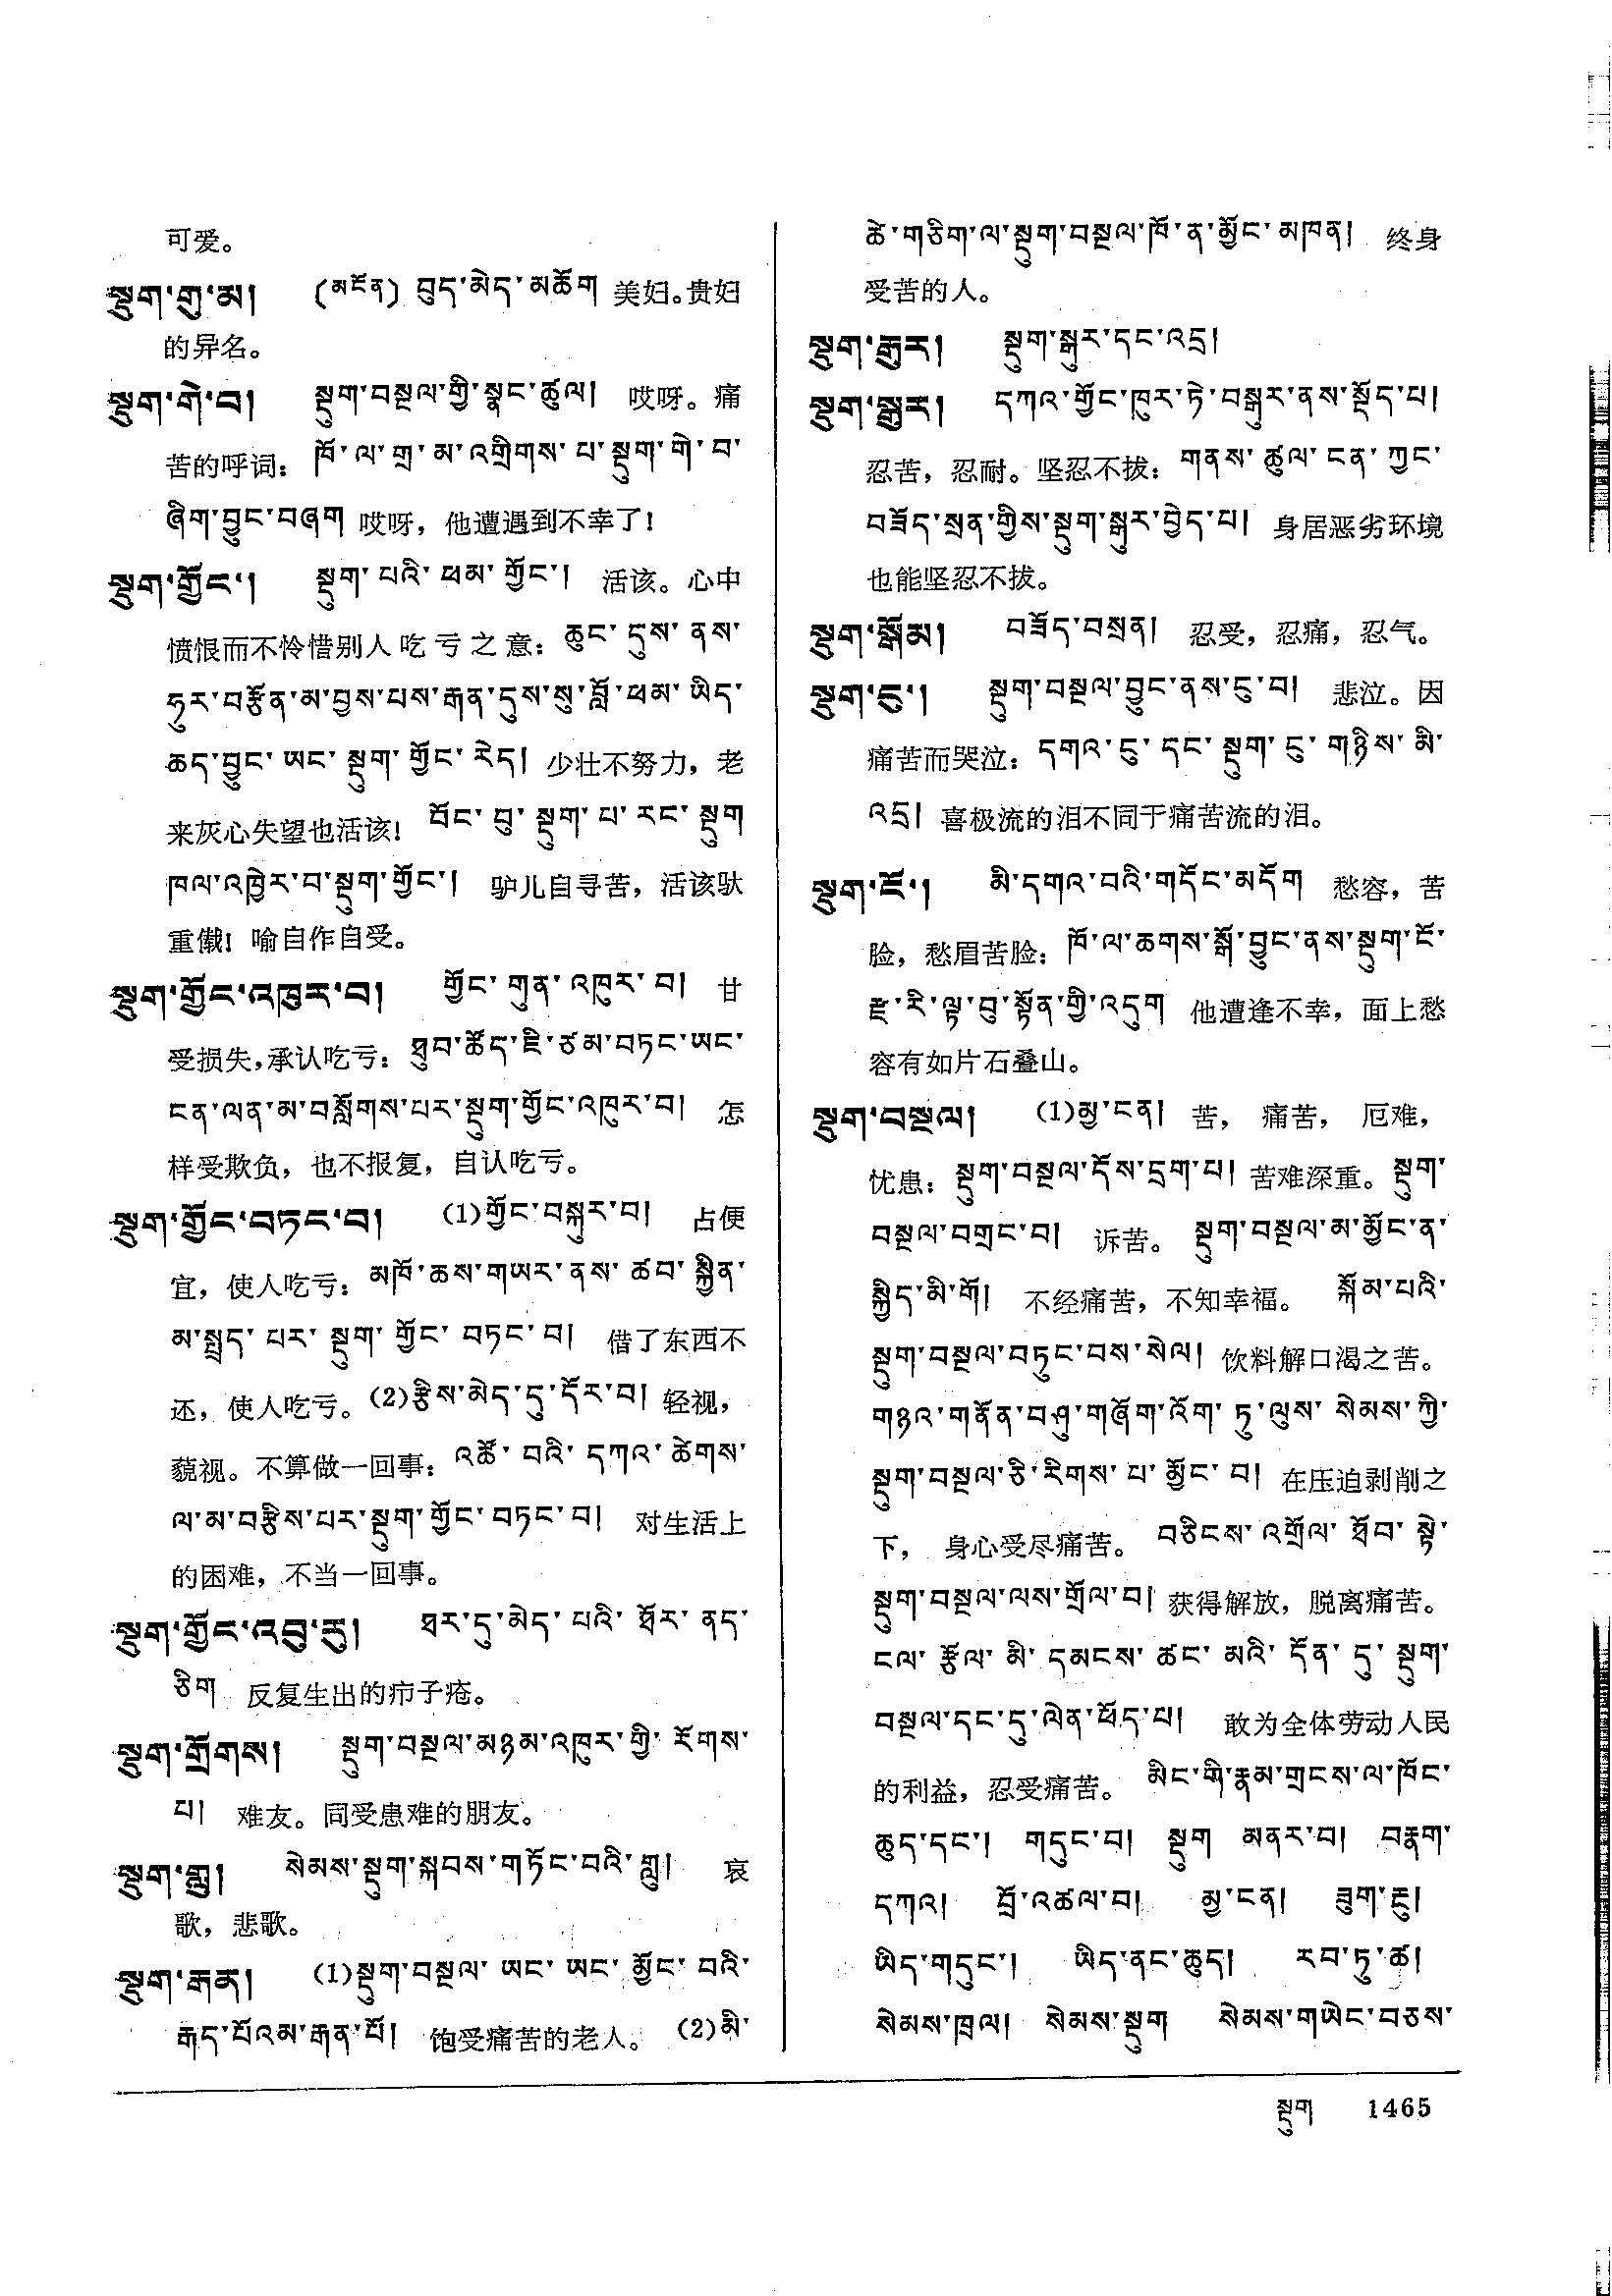 可爱。
སྡུག་གུ་མ།　(མངོན) བུད་མེད་མཆོག 美妇。贵妇
的异名。
སྡུག་གེ་བ།　སྡུག་བསྔལ་གྱི་སྣང་ཚུལ། 哎呀。痛
苦的呼词：ཁོ་ལ་གྲ་མ་འགྲིགས་པ་སྡུག་གེ་བ་
ཞིག་བྱུང་བཞག 哎呀，他遭遇到不幸了！
སྡུག་གྱོང་།　སྡུག་པའི་ཕམ་གྱོང་། 活该。心中
愤恨而不怜惜别人吃亏之意：ཆུང་དུས་ནས་
ཧུར་བརྩོན་མ་བྱས་པས་རྒན་དུས་སུ་བློ་ཕམ་ཡིད་
ཆད་བྱུང་ཡང་སྡུག་གྱོང་རེད། 少壮不努力，老
来灰心失望也活该！ བོང་བུ་སྡུག་པ་རང་སྡུག
ཁལ་འཁྱེར་བ་སྡུག་གྱོང་། 驴儿自寻苦，活该驮
重僌！喻自作自受。
སྡུག་གྱོང་འཁུར་བ།　གྱོང་གུན་འཁུར་བ། 甘
受损失，承认吃亏：ཐུབ་ཚོད་ཇི་ཙམ་བཏང་ཡང་
ངན་ལན་མ་བསློགས་པར་སྡུག་གྱོང་འཁུར་བ། 怎
样受欺负，也不报复，自认吃亏。
སྡུག་གྱོང་བཏང་བ།　(1)གྱོང་བསྐུར་བ། 占便
宜，使人吃亏：མཁོ་ཆས་གཡར་ནས་ཚབ་སྐྱིན་
མ་སྤྲད་པར་སྡུག་གྱོང་བཏང་བ། 借了东西不
还，使人吃亏。(2)རྩིས་མེད་དུ་དོར་བ། 轻视，
藐视。不算做一回事：འཚོ་བའི་དཀའ་ཚེགས་
ལ་མ་བརྩིས་པར་སྡུག་གྱོང་བཏང་བ། 对生活上
的困难，不当一回事。
སྡུག་གྱོང་འབུ་རུ།　ཐར་དུ་མེད་པའི་ཐོར་ནད་
ཅིག 反复生出的疖子疮。
སྡུག་གྲོགས།　སྡུག་བསྔལ་མཉམ་འཁུར་གྱི་རོགས་
པ། 难友。同受患难的朋友。
སྡུག་གླུ།　སེམས་སྡུག་སྐབས་གཏོང་བའི་གླུ། 哀
歌，悲歌。
སྡུག་རྒན།　(1)སྡུག་བསྔལ་ཡང་ཡང་མྱོང་བའི་
རྒད་པོའམ་རྒན་པོ། 饱受痛苦的老人。(2)མི་
ཚེ་གཅིག་ལ་སྡུག་བསྔལ་ཁོ་ན་མྱོང་མཁན། 终身
受苦的人。
སྡུག་རྒུར།　སྡུག་སྒུར་དང་འདྲ།
སྡུག་སྒུར།　དཀའ་གྱོང་ཁུར་ཏེ་བསྒུར་ནས་སྡོད་པ།
忍苦，忍耐。坚忍不拔：གནས་ཚུལ་ངན་ཀྱང་
བཟོད་སྲན་གྱིས་སྡུག་སྒུར་བྱེད་པ། 身居恶劣环境
也能坚忍不拔。
སྡུག་སྒོམ།　བཟོད་བསྲན། 忍受，忍痛，忍气。
སྡུག་ངུ་།　སྡུག་བསྔལ་བྱུང་ནས་ངུ་བ། 悲泣。因
痛苦而哭泣：དགའ་ངུ་དང་སྡུག་ངུ་གཉིས་མི་
འདྲ། 喜极流的泪不同于痛苦流的泪。
སྡུག་ངོ་།　མི་དགའ་བའི་གདོང་མདོག 愁容，苦
脸，愁眉苦脸：ཁོ་ལ་ཆགས་སྒོ་བྱུང་ནས་སྡུག་ངོ་
རྫ་རི་ལྟ་བུ་སྟོན་གྱི་འདུག 他遭逢不幸，面上愁
容有如片石叠山。
སྡུག་བསྔལ།　(1)མྱ་ངན། 苦， 痛苦， 厄难，
忧患：སྡུག་བསྔལ་དོས་དྲག་པ། 苦难深重。སྡུག་
བསྔལ་བགྲང་བ། 诉苦。 སྡུག་བསྔལ་མ་མྱོང་ན་
སྐྱིད་མི་གོ། 不经痛苦，不知幸福。 སྐོམ་པའི་
སྡུག་བསྔལ་བཏུང་བས་སེལ། 饮料解口渴之苦。
གཉའ་གནོན་བཤུ་གཞོག་འོག་ཏུ་ལུས་སེམས་ཀྱི་
སྡུག་བསྔལ་ཅི་རིགས་པ་མྱོང་བ། 在压迫剥削之
下， 身心受尽痛苦。 བཅིངས་འགྲོལ་ཐོབ་སྟེ་
སྡུག་བསྔལ་ལས་གྲོལ་བ། 获得解放，脱离痛苦。
ངལ་རྩོལ་མི་དམངས་ཚང་མའི་དོན་དུ་སྡུག་
བསྔལ་དང་དུ་ལེན་ཕོད་པ། 敢为全体劳动人民
的利益，忍受痛苦。 མིང་གི་རྣམ་གྲངས་ལ་ཁོང་
ཆུད་དང་། གདུང་བ། སྡུག མནར་བ། བརྣག་
དཀའ། བློ་འཚལ་བ། མྱ་ངན། ཟུག་རྔུ།
ཡིད་གདུང་། ཡིད་ནང་ཆུད། རབ་ཏུ་ཚ།
སེམས་ཁྲལ། སེམས་སྡུག སེམས་གཡེང་བཅས་
སྡུག　1465